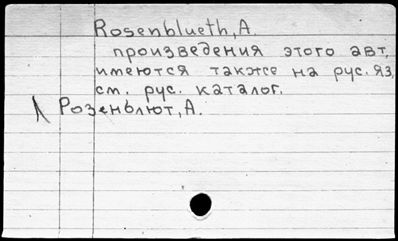 Rosenblueth, A.
произведения этого авт.
имеются также на рус. яз.
см. рус. каталог.
Розенблют, А.